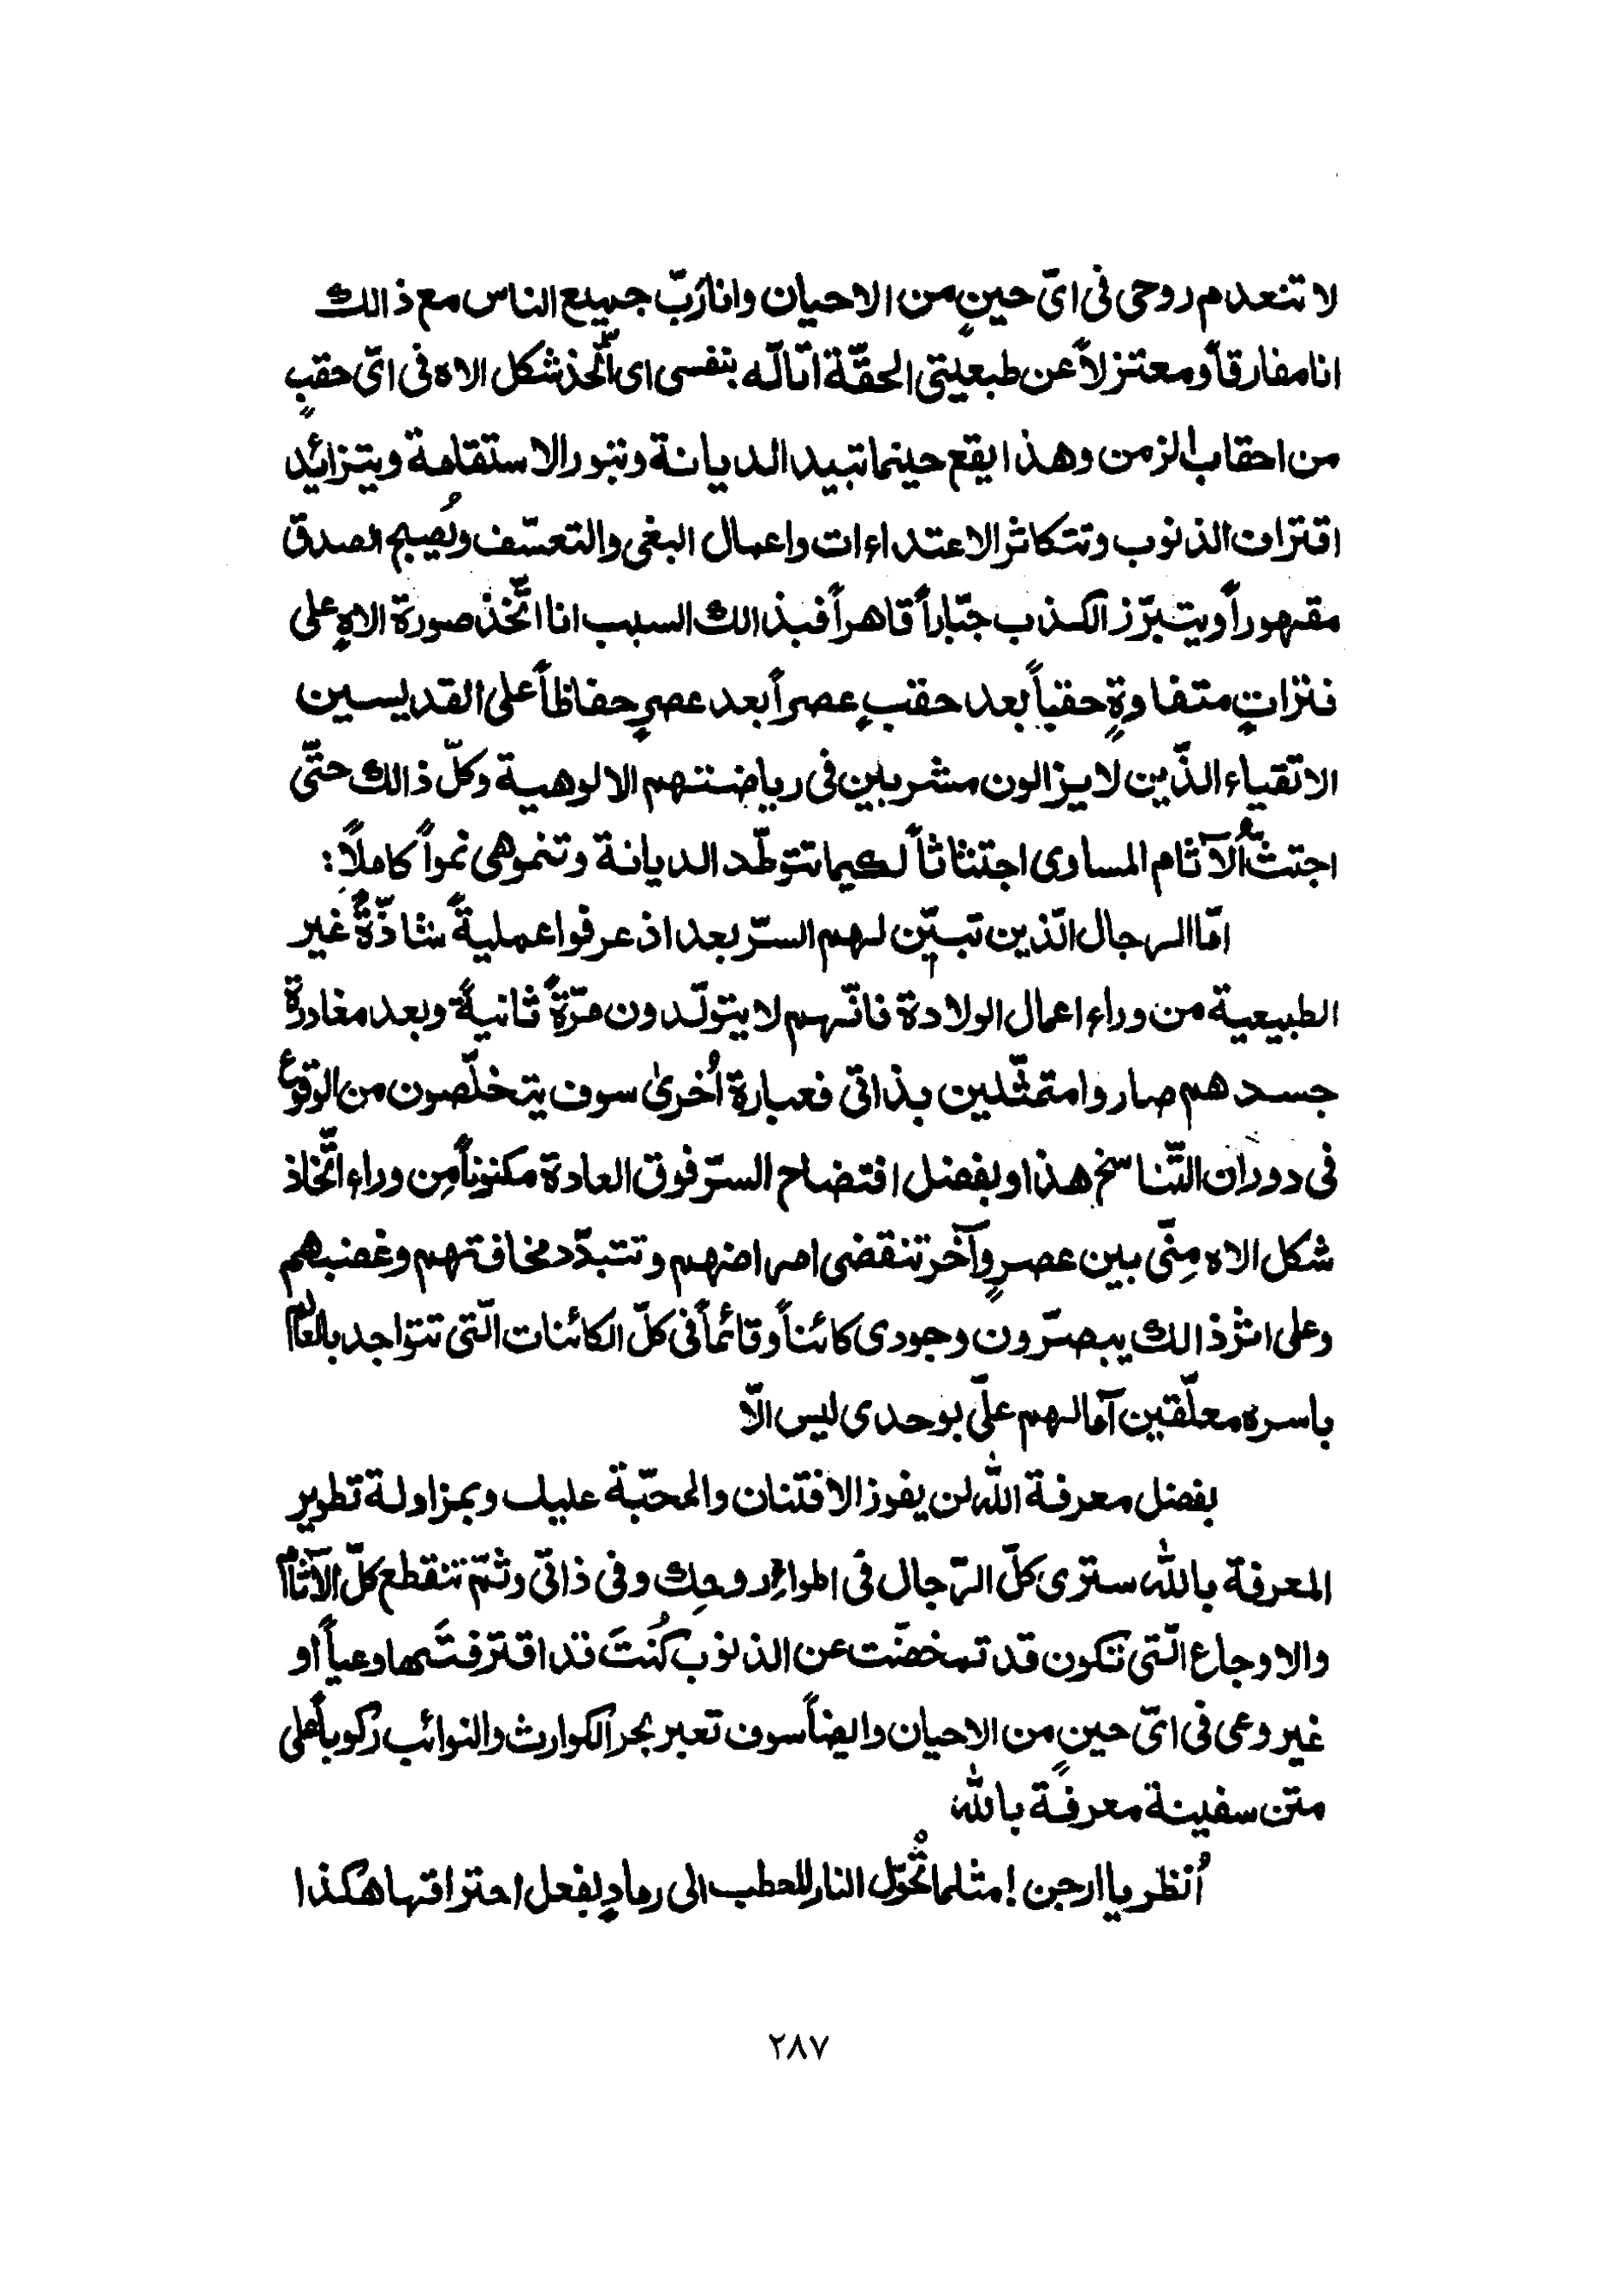 لا تنعدم روحى فى اىّ حينٍ من الاحيان وانا ربّ جميع الناس مع ذالك
انا مفارقاً ومعتزلاً عن طبعيتى الحقّة اتألّه بنفسى اى أتّخذ شكل الاه فى اىّ حقبٍ
من احقاب الزمن وهذا يقع حينما تبيد الديانة وتبور الاستقامة ويتزائد
اقتراف الذنوب وتتكاثر الاعتداءات واعمال البغى والتعسّف ويُصبح الصدق
مقهوراً ويتبرّز الكذب جبّاراً قاهراً فبذالك السبب انا اتّخذ صورة الاهٍ على
فتراتٍ متفاوةٍ حقباً بعد حقبٍ عصراً بعد عصرٍ حفاظاً على القديسين
الاتقياء الذّين لا يزالون مشربين فى رياضتهم الالوهية وكلّ ذالك حتّى
اجتثُّ الآثام المساوى اجتثاثاً لكيما تتوطّد الديانة وتنمو هى نمواً كاملاً:
امّا الرجال الّذين تبيّن لهم السرّ بعد اذ عرفوا عمليةً شاذّةً غير
الطبيعية من وراء اعمال الولادة فانّهم لا يتولّدون مرّةً ثانيةً وبعد مغادرة
جسدهم صاروا متمثّلين بذاتى فعبارة اُخرىٰ سوف يتخلّصون من الوقوع
فى دوران التّناسخ هذا وبفضل افتضاح السرّ فوق العادة مكنوناً مِن وراء اتّخاذ
شكل الاه مِنّى بين عصرٍ وآخر تنقضى امراضهم وتتبدّد مخافتهم وغضبهم
وعلى اثر ذالك يبصرّون وجودى كائناً وقائماً فى كلّ الكائنات الّتى تتواجد بالعالم
باسره معلّقين آمالهم علىّ بوحدى ليس الاّ
بفضل معرفة الله لن يفوز الافتنان والمحبّة عليك وبمزاولة تطوير
المعرفة بالله سترى كلّ الرّجال فى اطواءِ روحِك وفى ذاتى وثمّ تنقطع كلّ الآثام
والاوجاع الّتى تكون قد تمخضّت عن الذنوب كُنتَ قد اقترفتَها وعياً او
غير وعى فى اىّ حينٍ من الاحيان وايضاً سوف تعبر بحر الكوارث والنوائب ركوباً على
متن سفينة معرفة بالله
اُنظر يا ارجن! مثلما تُحوّل النار للحطب الى رمادٍ بفعل احتراقها هكذا
٢٨٧